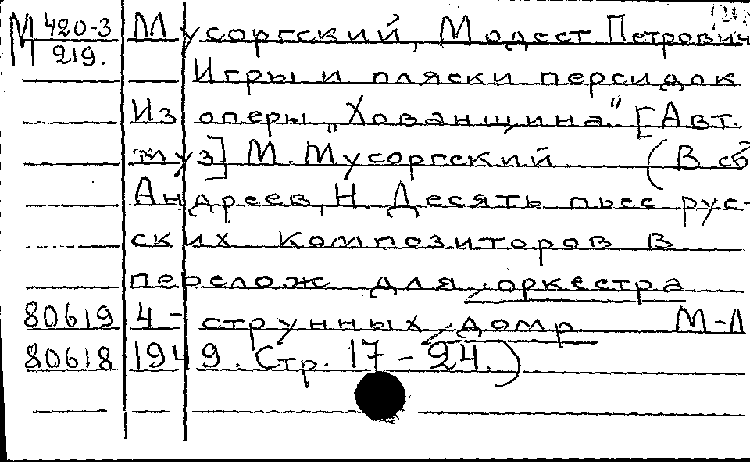 М 420-3 Мусоргский, Модест Петрович
219. Игры и пляски персидок
Из оперы „Хованщина" [Авт.
муз] М. Мусоргский (В сб
Андреев, Н. Десять пьес рус-
ских композиторов в
перелож для оркестра
80619 4-струнных домр М-Л
80618 1949. Стр. 17-24.)